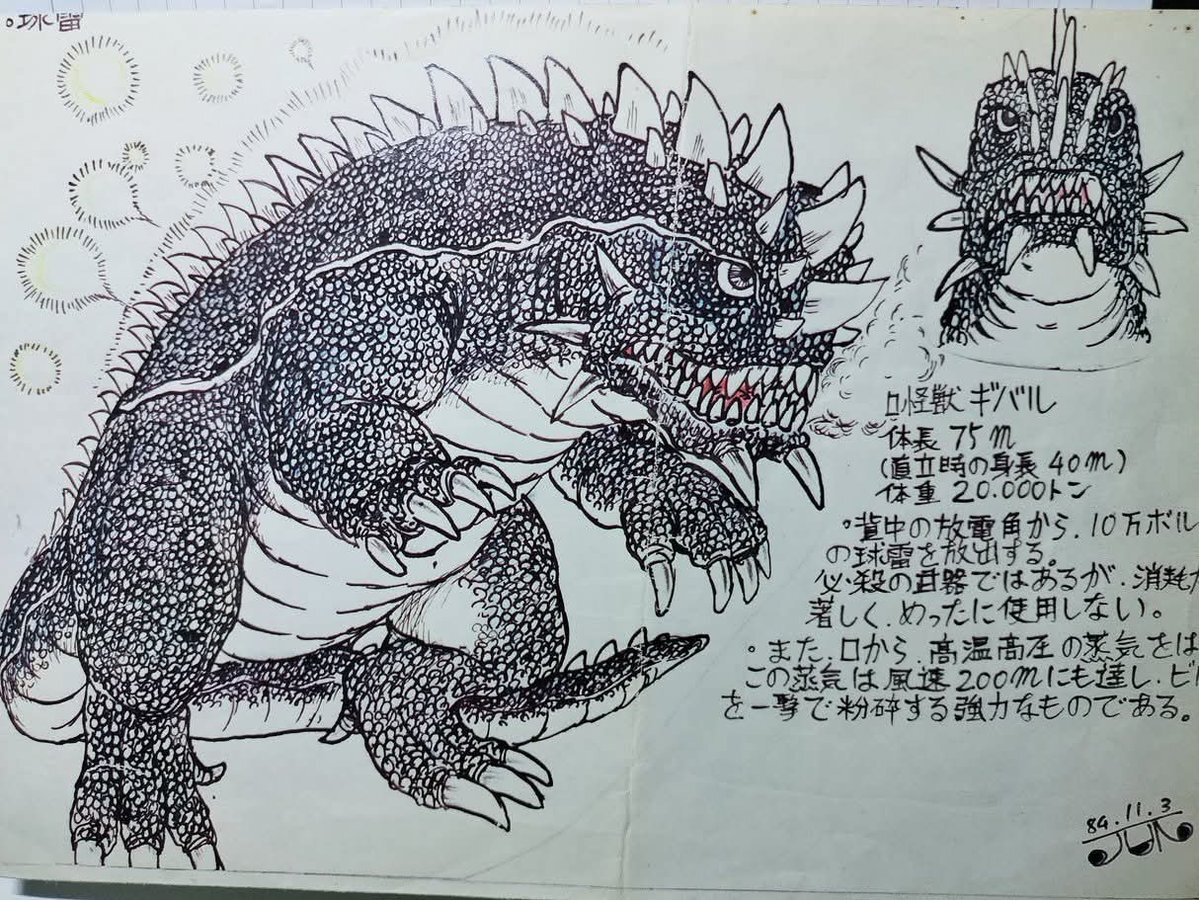 ○球雷
□怪獣 ギバル
体長 75m
(直立時の身長 40m)
体重 20.000トン
○背中の放電角から、10万ボル
の球雷を放出する。
必殺の武器ではあるが、消耗が
著しく、めったに使用しない。
○また、口から、高温高圧の蒸気をは
この蒸気は風速200mにも達し、ビ
を一撃で粉砕する強力なものである。
84.11.3
JUN